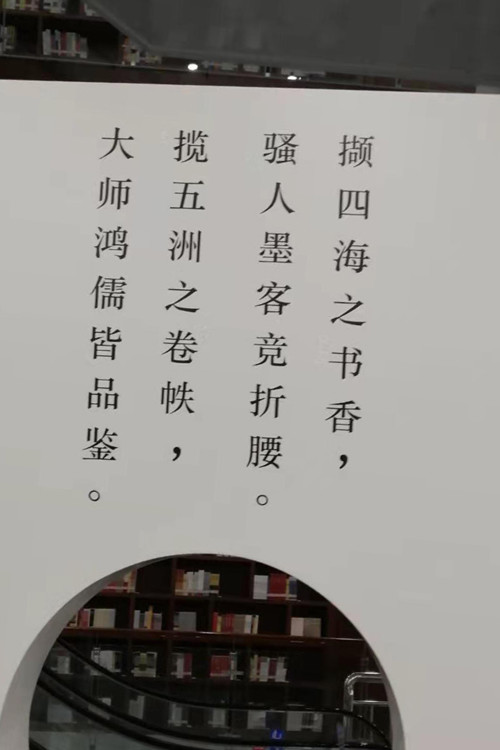 撷四海之书香，
骚人墨客竞折腰。
揽五洲之卷帙，
大师鸿儒皆品鉴。